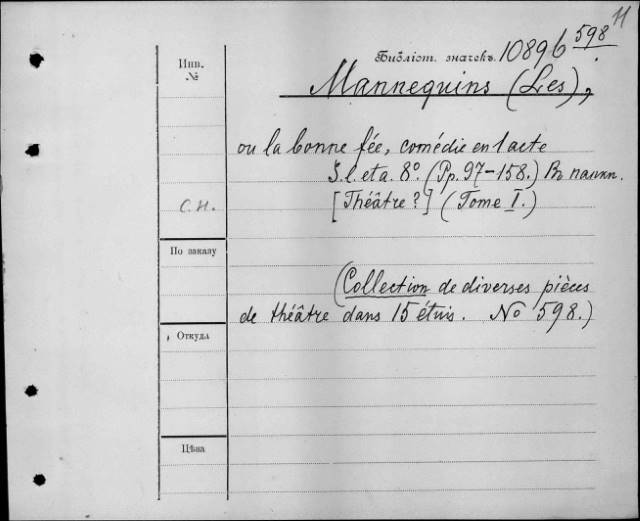 11
Библіот. значекъ. 10896 598
Инв.
№
Mannequins (Les),
ou la bonne fée, comédie en 1 acte
S. l. et a. 8º. (Pp. 97-158.) Въ папкѣ.
С. Н.
[Théâtre?] (Tome I.)
По заказу
(Collection de diverses pièces
de théâtre dans 15 étuis. No 598.)
Откуда
Цѣна